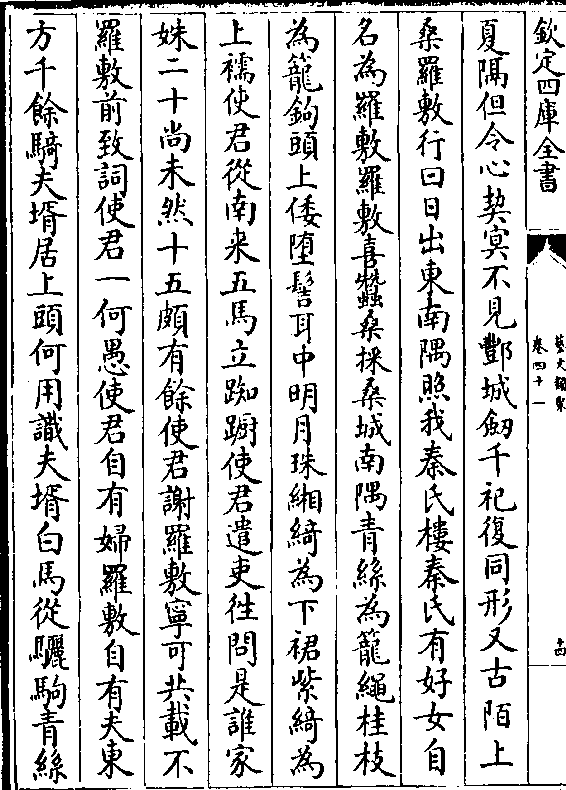 欽定四庫全書
藝文類聚
卷四十一
十四
夏隅但令心契㝠不見酆城劒千祀復同形又古陌上
桑羅敷行曰日出東南隅照我秦氏樓秦氏有好女自
名為羅敷羅敷喜蠶桑採桑城南隅青絲為籠繩桂枝
為籠鉤頭上倭墮髻耳中明月珠緗綺為下裙紫綺為
上襦使君從南来五馬立踟蹰使君遣吏徃問是誰家
姝二十尚未然十五頗有餘使君謝羅敷寧可共載不
羅敷前致詞使君一何愚使君自有婦羅敷自有夫東
方千餘騎夫壻居上頭何用識夫壻白馬從驪駒青絲